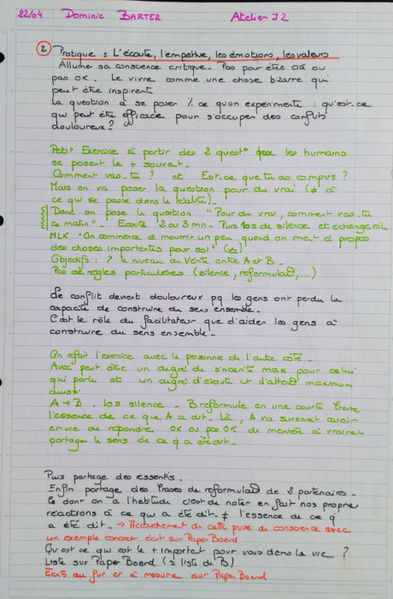 22/04 Dominic BARTER Atelier J2
2 Pratique : L'écoute, l'empathie, les émotions, les valeurs
Allume sa conscience critique. Pas pour être OK ou
pas OK. Le vivre comme une chose bizarre qui
peut être inspirant
La question à se poser % ce qu'on expérimente : qu'est-ce
qui peut être efficace pour s'occuper des conflits
douloureux ?
Petit Exercice à partir des 2 quest° que les humains
se posent le + souvent.
Comment vas-tu ? et Est-ce que tu as compris ?
Mais on va poser la question pour du vrai (≠ à
ce qui se passe dans la réalité).
Donc on pose la question "Pour du vrai, comment vas-tu
ce matin". Ecoute 2 ou 3 mn. Puis 10s de silence et échange rôle
MLK "On commence à mourir un peu quand on met à propos
des choses importantes pour soi"
Objectifs : ? le niveau de vérité entre A et B.
Pas de règles particulières (silence, reformulat°, ...)
Le conflit devient douloureux pq les gens ont perdu la
capacité de construire du sens ensemble.
C'est le rôle du facilitateur que d'aider les gens à
construire du sens ensemble.
On refait l'exercice avec la personne de l'autre côté.
Avec peut être un degré de sincérité max pour celui
qui parle et un degré d'écoute et d'attent° maximum
aussi
A → B. 10s silence. B reformule en une courte phrase
l'essence de ce que A a dit. Là, A va sûrement avoir
envie de répondre OK ou pas OK du manière à vraiment
partager le sens de ce q a été dit.
Puis partage des ressentis.
Enfin partage des phrases de reformulat° de 2 partenaires.
Ce dont on a l'habitude c'est de noter en fait nos propres
réactions à ce qui a été dit ≠ l'essence de ce q
a été dit. → Accouchement de cette prise de conscience avec
un exemple concret écrit sur Paper Board
Qu'est ce qui est le + important pour vous dans la vie ?
Liste sur Paper Board (≥ liste de B)
Ecrits au fur et à mesure sur Paper Board